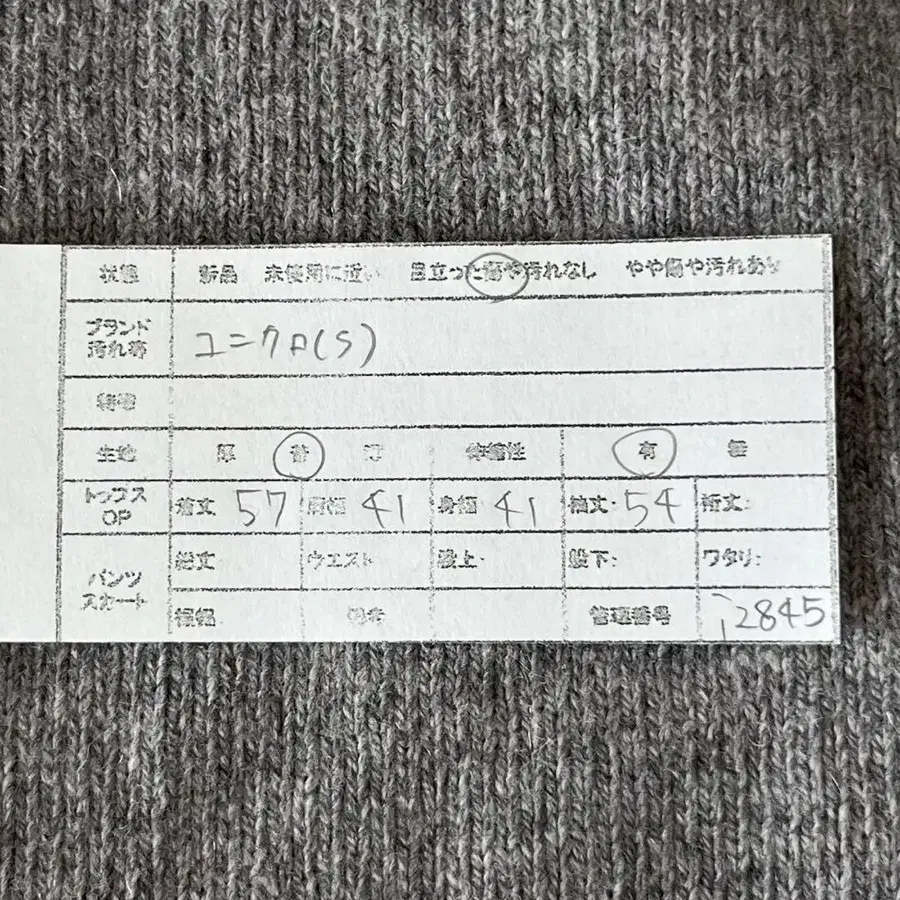 状態 新品 未使用に近い 目立った傷や汚れなし やや傷や汚れあり
ブランド
汚れ等 ユニクロ(S)
特徴
生地 厚 普 薄 伸縮性 有 無
トップス
OP 着丈 57 肩幅 41 身幅 41 袖丈: 54 裄丈:
パンツ
スカート 総丈 ウエスト 股上: 股下: ワタリ:
裾幅 備考 管理番号 i2845